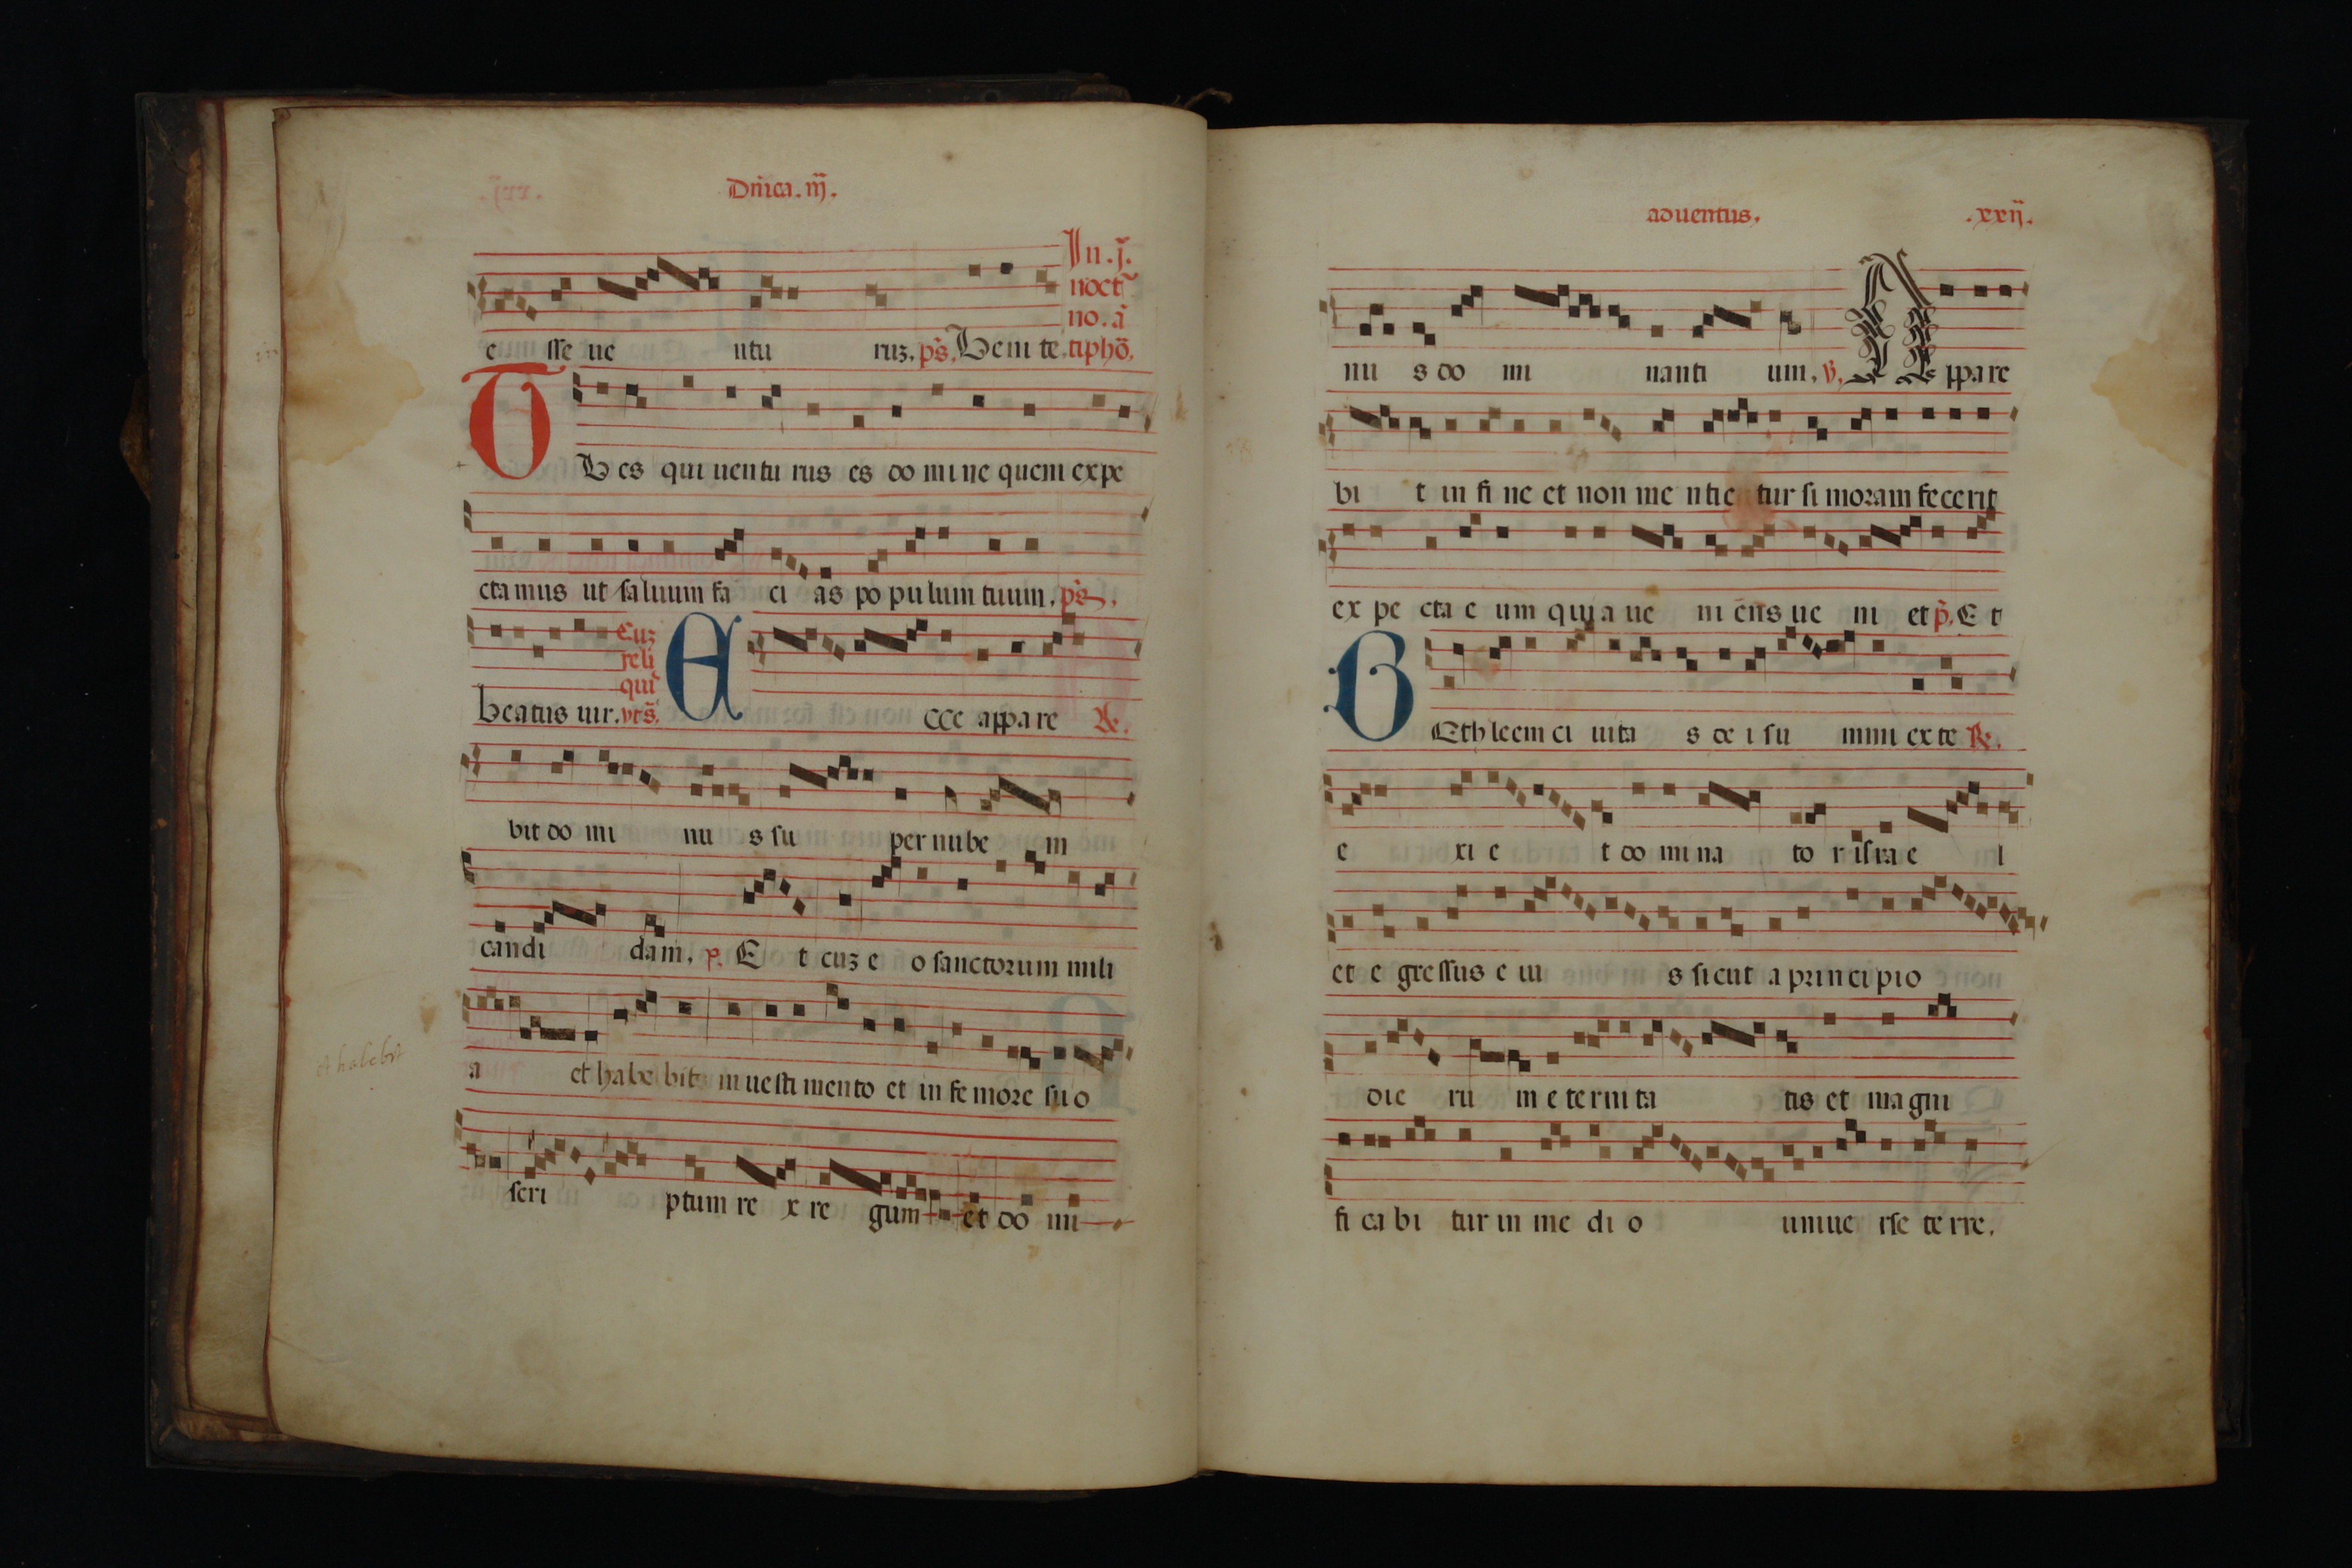 Dñica. iij.
In. j.
noct
no. ã
e sse ue ntu ruz. p̃s. Ueni te. tiphõ.
T Ues qui uentu rus es do mi ne quem expe
cta mus ut saluum fa ci as po pu lum tuum. p̃s.
Euz
reli
qui
beatus uir. vrs̃. E cce appa re ℟.
bit do mi nu s su per nube m
candi dam. p. E t cuz e o sanctorum mili
a et habe bit in uesti mento et in fe more su o
et habebit
scri ptum re x re gum et do mi
aduentus. .xxij.
nu s do mi nanti um. ℣. A ppa re
bi t in fi ne et non me ntie tur si moram fecerit
ex pe cta e um quia ue ni ẽns ue ni et p̃. E t
B Ethleem ci uita s de i su mmi ex te ℟.
e xi e t do mi na to r israe l
et e gressus e iu s sicut a principio
die ru m e terni ta tis et ma gni
fi ca bi tur in me di o uniue rse te rre.